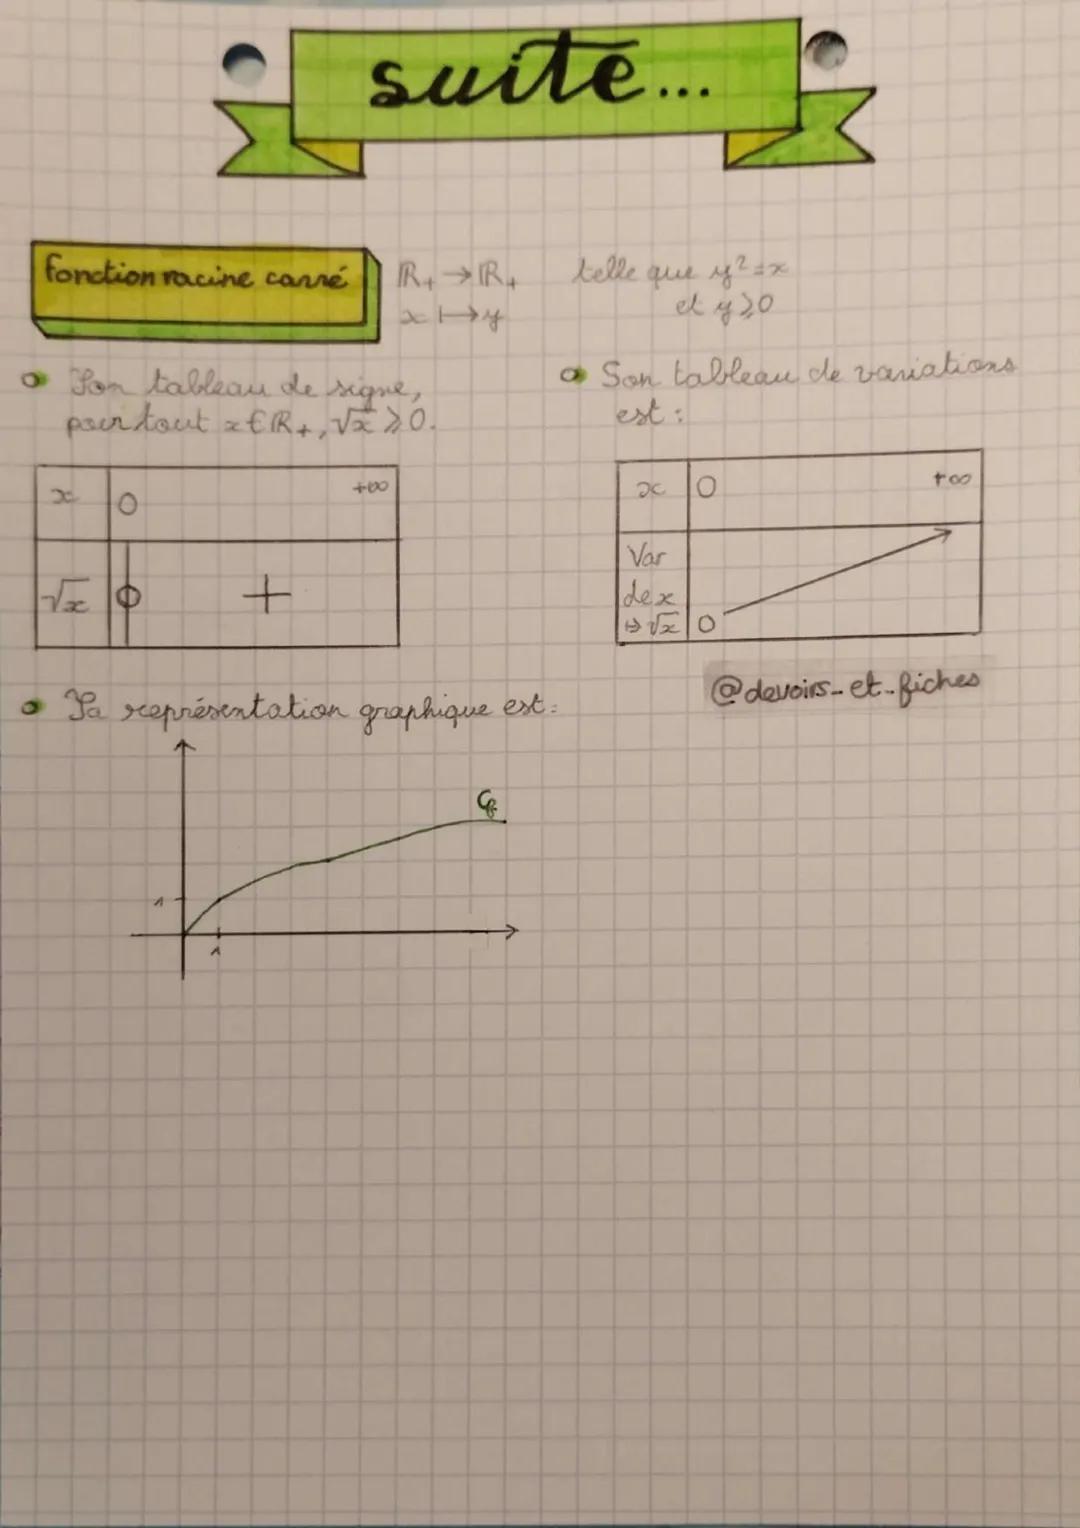 suite...
fonction racine carré
ℝ₊ → ℝ₊
x ↦ y
telle que y² = x
et y ⩾ 0
Son tableau de signe,
pour tout x ∈ ℝ₊, √x ⩾ 0.
x 0 +∞
√x 0 +
Son tableau de variations
est :
x 0 +∞
Var
de x
↦ √x 0
@devoirs_et_fiches
Sa représentation graphique est :
Cf
1
1